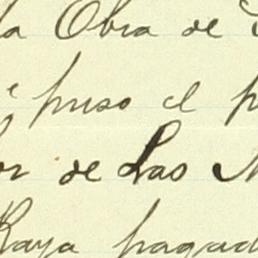 la Obra de
puso el p
or de Las N
Raya pagad